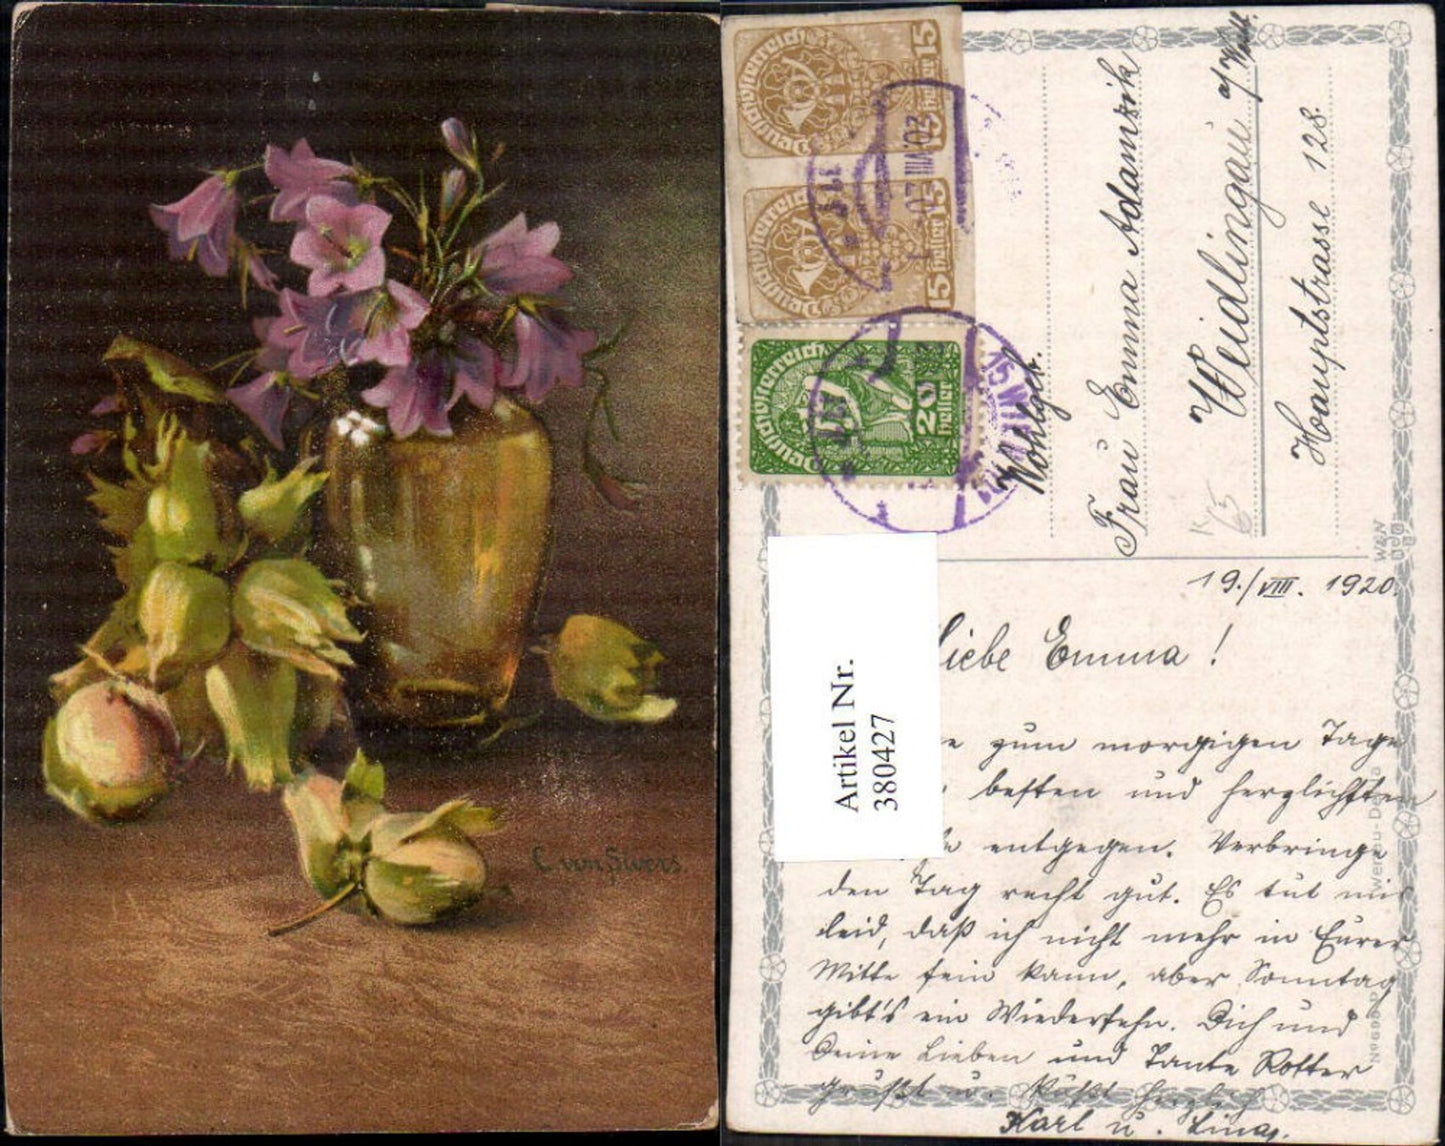 C. von Sivers
Deutschösterreich
15 Heller 15
Deutschösterreich
15 Heller 15
Deutschösterreich
20
Heller
Wohlgeb.
Frau Emma Adamsik
Weidlingau a/ Wall.
Hauptstrasse 128.
WEN
Artikel Nr.
380427
19./VIII. 1920.
Liebe Emma!
zum morgigen Tage
besten und herzlichsten
entgegen. Verbringe
den Tag recht gut. Es tut mir
leid, daß ich nicht mehr in Eurer
Mitte sein kann, aber Sonntag
gibt's ein Wiedersehn. Dich und
Deine Lieben und Tante Rotter
grüßt u. küßt herzlich
Karl u. Lina.